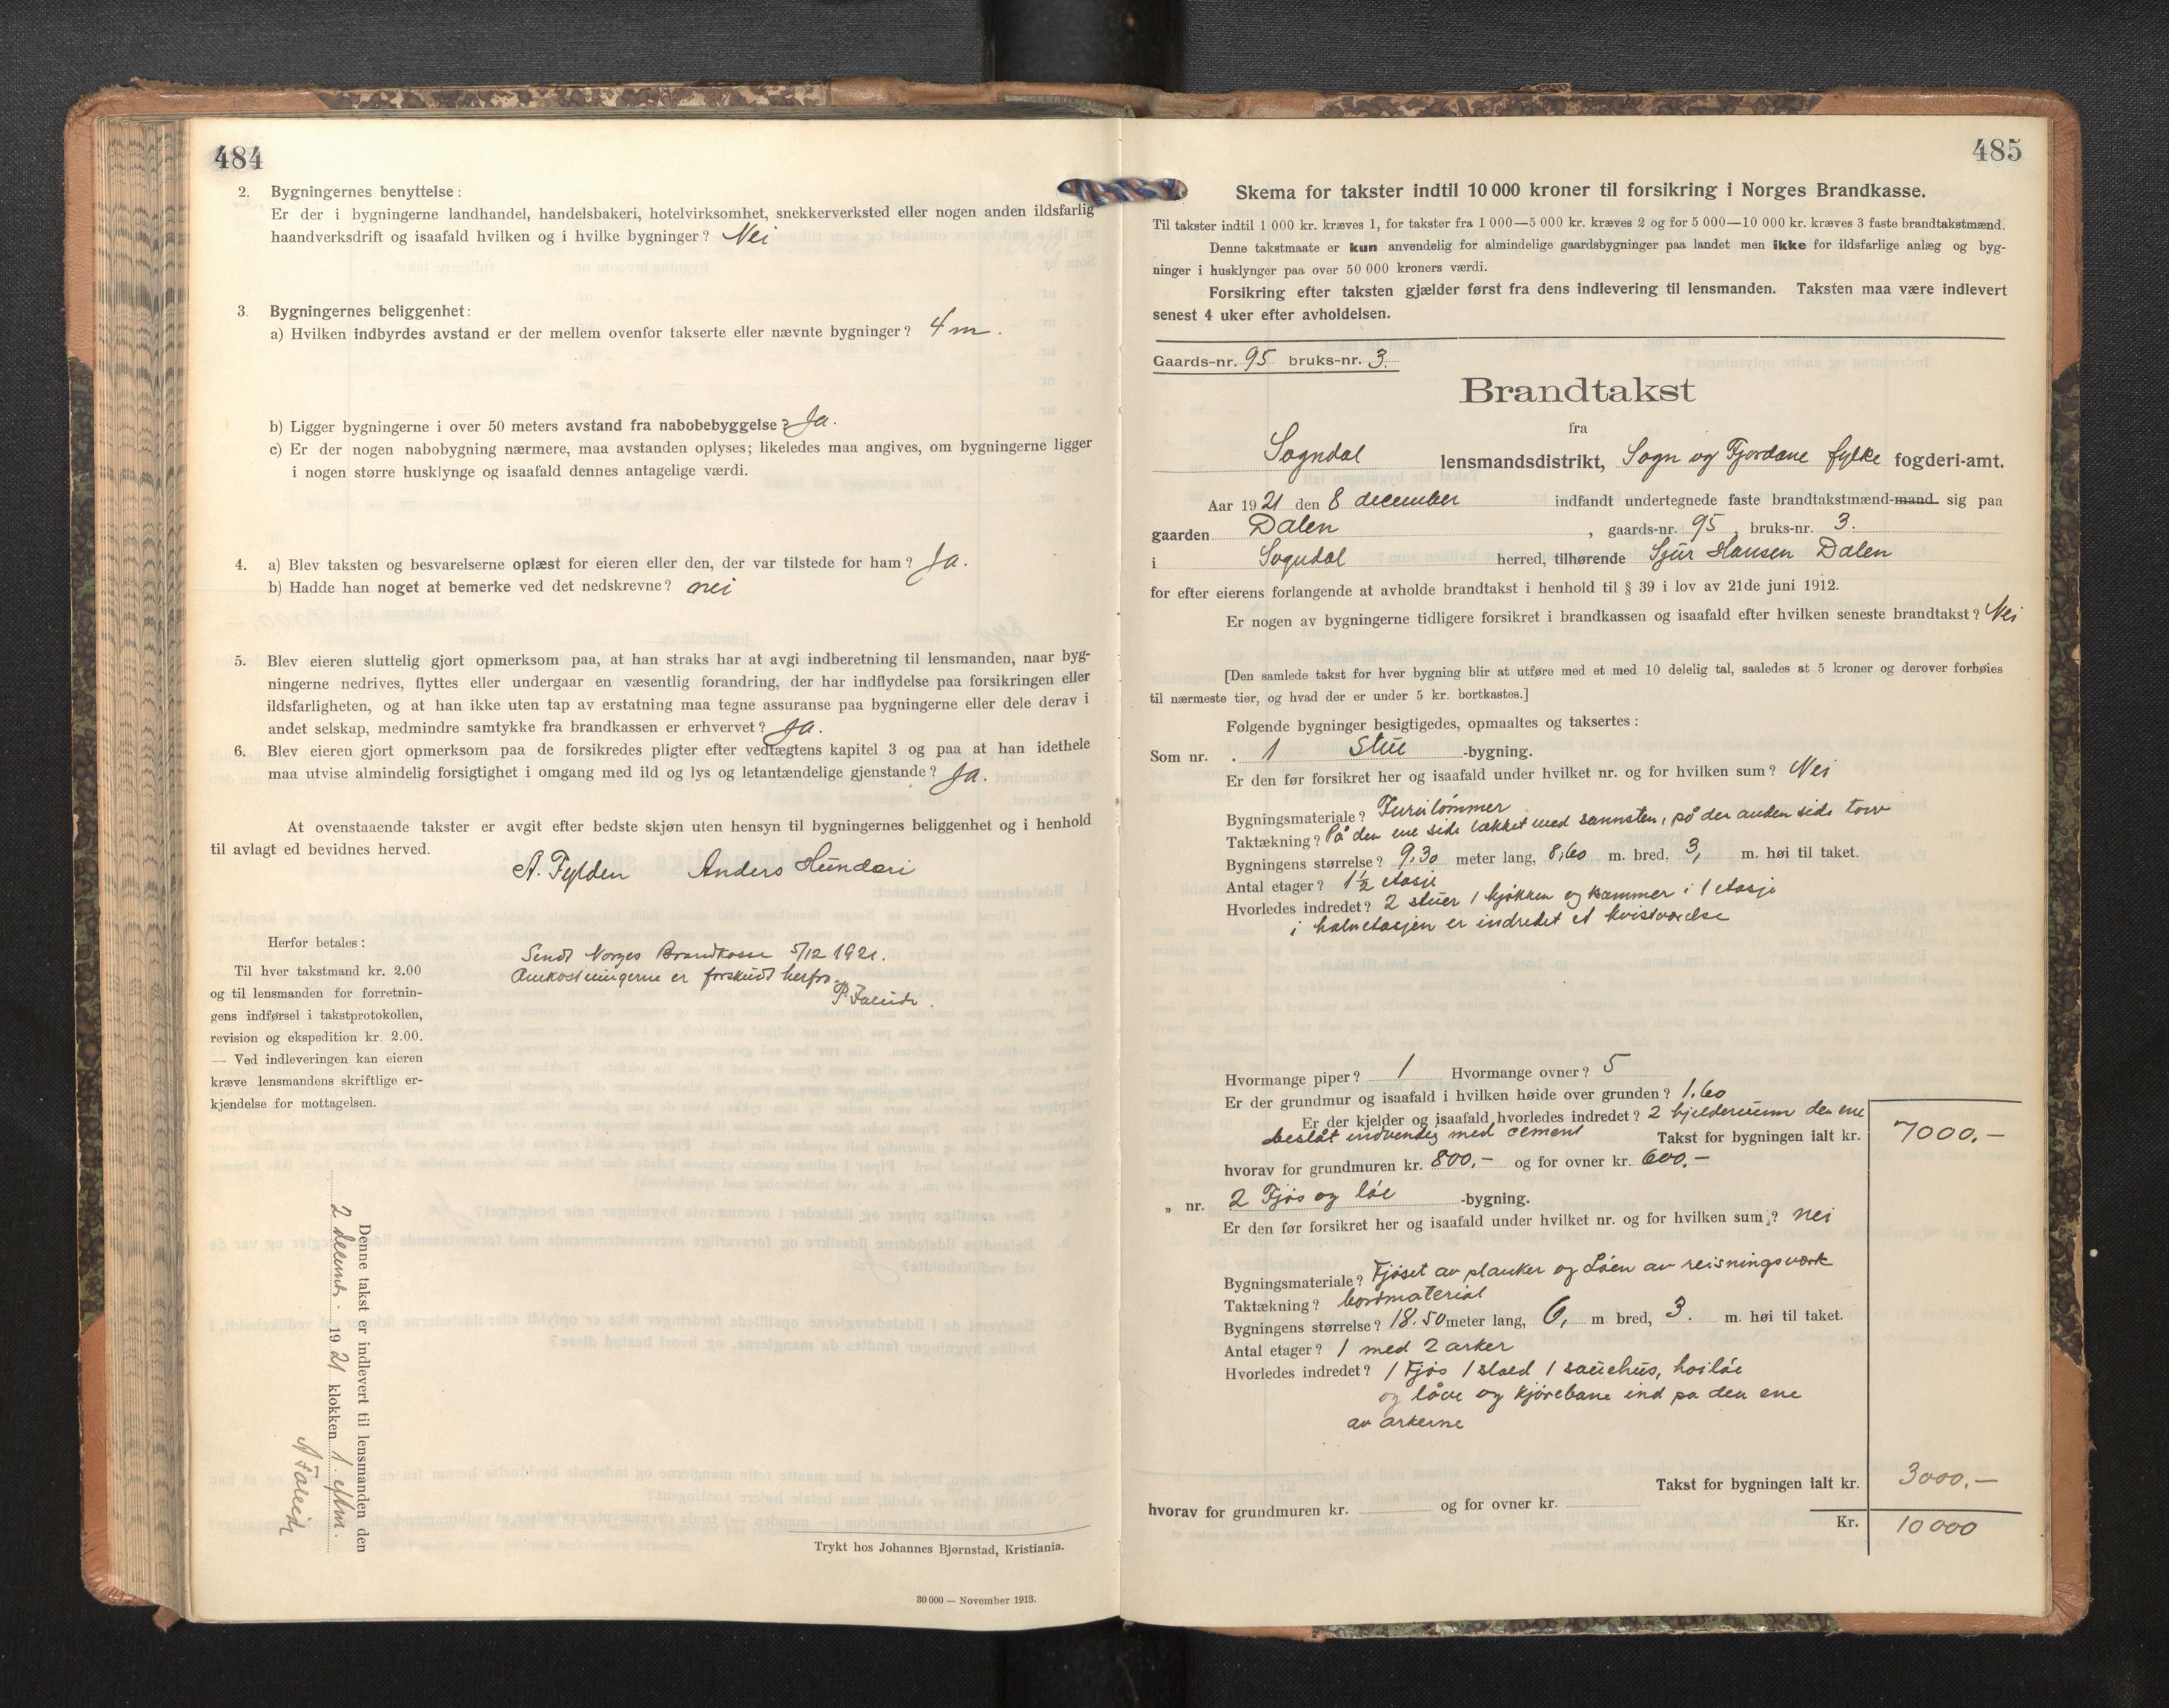 484
2. Bygningernes benyttelse:
Er der i bygningerne landhandel, handelsbakeri, hotelvirksomhet, snekkerverksted eller nogen anden ildsfarlig
haandverksdrift og isaafald hvilken og i hvilke bygninger? Nei
3. Bygningernes beliggenhet:
a) Hvilken indbyrdes avstand er der mellem ovenfor takserte eller nævnte bygninger? 4 m.
b) Ligger bygningerne i over 50 meters avstand fra nabobebyggelse? Ja.
c) Er der nogen nabobygning nærmere, maa avstanden oplyses; likeledes maa angives, om bygningerne ligger
i nogen større husklynge og isaafald dennes antagelige værdi.
4. a) Blev taksten og besvarelserne oplæst for eieren eller den, der var tilstede for ham? Ja.
b) Hadde han noget at bemerke ved det nedskrevne? nei
5. Blev eieren sluttelig gjort opmerksom paa, at han straks har at avgi indberetning til lensmanden, naar byg-
ningerne nedrives, flyttes eller undergaar en væsentlig forandring, der har indflydelse paa forsikringen eller
ildsfarligheten, og at han ikke uten tap av erstatning maa tegne assuranse paa bygningerne eller dele derav i
andet selskap, medmindre samtykke fra brandkassen er erhvervet? Ja.
6. Blev eieren gjort opmerksom paa de forsikredes pligter efter vedtægtens kapitel 3 og paa at han idethele
maa utvise almindelig forsigtighet i omgang med ild og lys og letantændelige gjenstande? Ja.
At ovenstaaende takster er avgit efter bedste skjøn uten hensyn til bygningernes beliggenhet og i henhold
til avlagt ed bevidnes herved.
A. Fylden Anders Hunderi
Herfor betales:
Til hver takstmand kr. 2.00
og til lensmanden for forretnin-
gens indførsel i takstprotokollen,
revision og ekspedition kr. 2.00.
— Ved indleveringen kan eieren
kræve lensmandens skriftlige er-
kjendelse for mottagelsen.
Sendt Norges Brandkasse 5/12 1921.
Omkostningerne er forskudt herfra
P. Faleide.
Denne takst er indlevert til lensmanden den
2 decemb. 1921 klokken 1 eftm.
Faleide
Trykt hos Johannes Bjørnstad, Kristiania.
30 000 — November 1913.
485
Skema for takster indtil 10 000 kroner til forsikring i Norges Brandkasse.
Til takster indtil 1 000 kr. kræves 1, for takster fra 1 000—5 000 kr. kræves 2 og for 5 000—10 000 kr. kræves 3 faste brandtakstmænd.
Denne takstmaate er kun anvendelig for almindelige gaardsbygninger paa landet men ikke for ildsfarlige anlæg og byg-
ninger i husklynger paa over 50 000 kroners værdi.
Forsikring efter taksten gjælder først fra dens indlevering til lensmanden. Taksten maa være indlevert
senest 4 uker efter avholdelsen.
Gaards-nr. 95 bruks-nr. 3.
Brandtakst
fra
Sogndal lensmandsdistrikt, Sogn og Fjordane fylke fogderi-amt.
Aar 1921 den 8 december indfandt undertegnede faste brandtakstmænd-mand sig paa
gaarden Dalen, gaards-nr. 95, bruks-nr. 3.
i Sogndal herred, tilhørende Sjur Hansen Dalen
for efter eierens forlangende at avholde brandtakst i henhold til § 39 i lov av 21de juni 1912.
Er nogen av bygningerne tidligere forsikret i brandkassen og isaafald efter hvilken seneste brandtakst? Nei
[Den samlede takst for hver bygning blir at utføre med et med 10 delelig tal, saaledes at 5 kroner og derover forhøies
til nærmeste tier, og hvad der er under 5 kr. bortkastes.]
Følgende bygninger besigtigedes, opmaaltes og taksertes:
Som nr. 1 Stue -bygning.
Er den før forsikret her og isaafald under hvilket nr. og for hvilken sum? Nei
Bygningsmateriale? Furutømmer
Taktækning? På den ene side tækket med sannsten, på der anden side torv
Bygningens størrelse? 9,30 meter lang, 8,60 m. bred, 3, m. høi til taket.
Antal etager? 1½ etasje
Hvorledes indredet? 2 stuer 1 kjøkken og kammer i 1 etasje
i halvetasjen er indredet et kvistværelse
Hvormange piper? 1 Hvormange ovner? 5
Er der grundmur og isaafald i hvilken høide over grunden? 1.60
Er der kjelder og isaafald hvorledes indredet? 2 kjelderrum den ene
beslåt indvendig med cement Takst for bygningen ialt kr. 7000,—
hvorav for grundmuren kr. 800,— og for ovner kr. 600,—
„ nr. 2 Fjøs og løe -bygning.
Er den før forsikret her og isaafald under hvilket nr. og for hvilken sum? nei
Bygningsmateriale? Fjøset av planker og Løen av reisningsværk
Taktækning? bordmaterial
Bygningens størrelse? 18.50 meter lang, 6, m. bred, 3. m. høi til taket.
Antal etager? 1 med 2 arker
Hvorledes indredet? 1 Fjøs 1 stald 1 sauehus, høiløe
og låve og kjørebane ind pa den ene
av arkerne
Takst for bygningen ialt kr. 3000,—
hvorav for grundmuren kr. og for ovner kr.
Kr. 10000